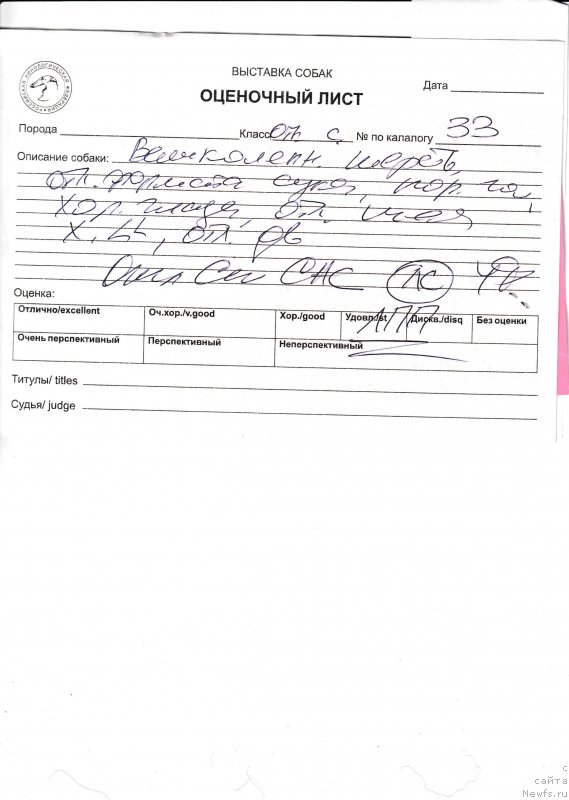 РОССИЙСКАЯ КИНОЛОГИЧЕСКАЯ ФЕДЕРАЦИЯ
ВЫСТАВКА СОБАК
ОЦЕНОЧНЫЙ ЛИСТ
Дата
Порода Класс отк с. № по калалогу 33
Описание собаки: Великолепн. шерсть,
отл. формата сука, хор. гол,
хор. глаза, отл. шея
х. отл. дв
Отл CAC ЛС
Оценка:
Отлично/excellent Оч.хор./v.good Хор./good Удовл./st Дискв./disq Без оценки
ЛПП
Очень перспективный Перспективный Неперспективный
Титулы/ titles
Судья/ judge
с
сайта
Newfs.ru